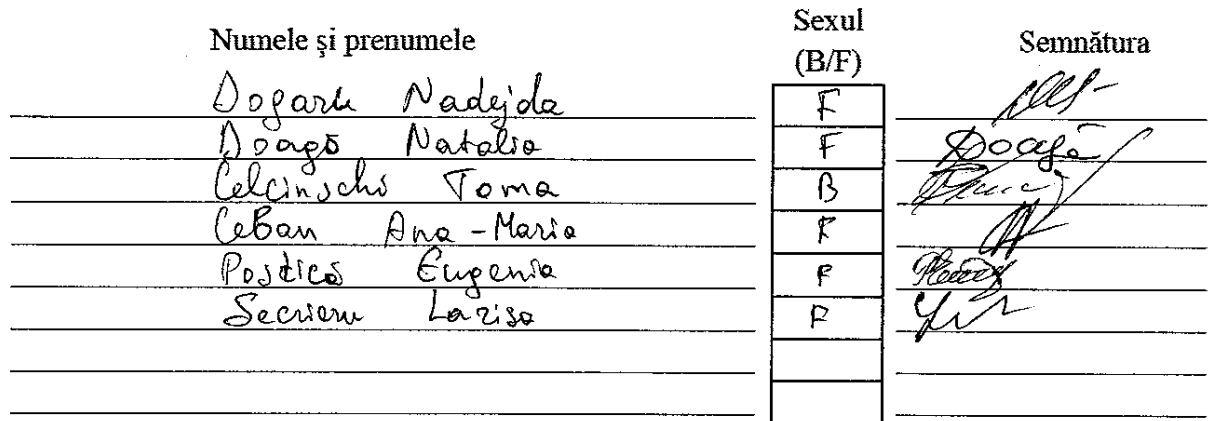 Numele și prenumele Sexul (B/F) Semnătura
Dogaru Nadejda F
Doagă Natalia F Doagă
Celcinschi Toma B
Ceban Ana-Maria F
Postică Eugenia F
Secrieru Larisa F